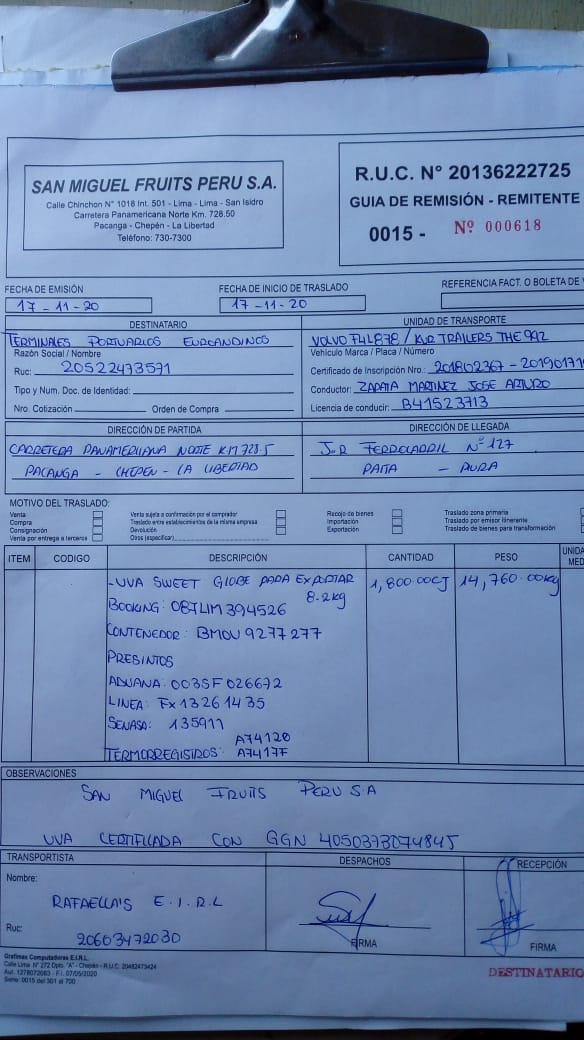 SAN MIGUEL FRUITS PERU S.A.
Calle Chinchon N° 1018 Int. 501 - Lima - Lima - San Isidro
Carretera Panamericana Norte Km. 728.50
Pacanga - Chepén - La Libertad
Teléfono: 730-7300
R.U.C. N° 20136222725
GUIA DE REMISIÓN - REMITENTE
0015 - Nº 000618
FECHA DE EMISIÓN
17-11-20
FECHA DE INICIO DE TRASLADO
17-11-20
REFERENCIA FACT. O BOLETA DE
DESTINATARIO
TERMINALES PORTUARIOS EUROANDINOS
Razón Social / Nombre
Ruc: 20522473571
Tipo y Num. Doc. de Identidad:
Nro. Cotización Orden de Compra
UNIDAD DE TRANSPORTE
VOLVO F4L878 / KUR TRAILERS THE 992
Vehículo Marca / Placa / Número
Certificado de Inscripción Nro.: 201802367 - 20190171
Conductor: ZAPATA MARTINEZ JOSE ARTURO
Licencia de conducir: B41523713
DIRECCIÓN DE PARTIDA
CARRETERA PANAMERICANA NORTE KM 728.5
PACANGA - CHEPEN - LA LIBERTAD
DIRECCIÓN DE LLEGADA
J.R FERROCARRIL N° 127
PAITA - PIURA
MOTIVO DEL TRASLADO:
Venta
Compra
Consignación
Venta por entrega a terceros
Venta sujeta a confirmación por el comprador
Traslado entre establecimientos de la misma empresa
Devolución
Otros (especificar)
Recojo de bienes
Importación
Exportación
Traslado zona primaria
Traslado por emisor itinerante
Traslado de bienes para transformación
ITEM CODIGO DESCRIPCIÓN CANTIDAD PESO UNIDA
MED
-UVA SWEET GLOBE PARA EXPORTAR 1,800.00CJ 14,760.00kg
8.2kg
BOOKING: 087LIM394526
CONTENEDOR: BMOU 9277277
PRESINTOS
ADUANA: 003SF026672
LINEA: Fx13261435
SENASA: 135911
A74120
TERMORREGISTROS: A7417F
OBSERVACIONES
SAN MIGUEL FRUITS PERU S.A
UVA CERTIFICADA CON GGN 4050373074845
TRANSPORTISTA
Nombre:
RAFAELLA'S E.I.R.L
Ruc:
20603472030
DESPACHOS
FIRMA
RECEPCIÓN
FIRMA
Grafimax Computadoras E.I.R.L.
Calle Lima N° 272 Dpto. "A" - Chepén - R.U.C. 20482473424
Aut. 1278072083 - F.I. 07/05/2020
Serie: 0015 del 301 al 700
DESTINATARIO